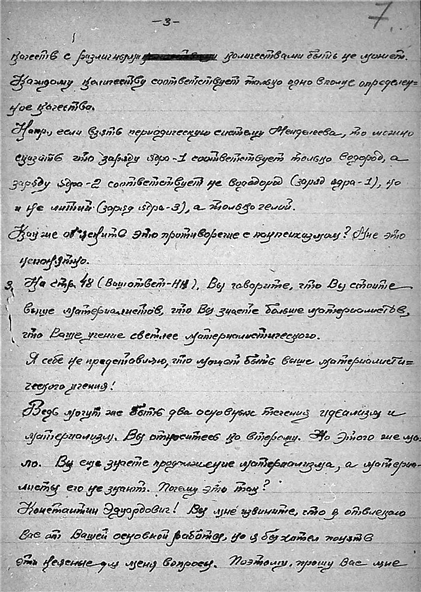 -3-
7.
качеств с различными количествами быть не может.
Каждому количеству соответствует только одно вполне определен-
ное качество.
Напр., если взять периодическую систему Менделеева, то можно
сказать что заряду ядра-1 соответствует только водород, а
заряду ядра-2 соответствует не водород (заряд ядра-1), но
и не литий (заряд ядра-3), а только гелий.
Как же об'яснить это противоречие с панпсихизмом? Мне это
непонятно.
3. На стр. 48 (Ваш ответ-НН). Вы говорите, что Вы стоите
выше материалистов, что Вы знаете больше материалистов,
что Ваше учение светлее материалистического.
Я себе не представляю, что может быть выше материалисти-
ческого учения!
Ведь могут же быть два основных течения идеализм и
материализм. Вы относитесь ко второму. Но этого же ма-
ло. Вы еще знаете продолжение материализма, а материа-
листы его не знают. Почему это так?
Константин Эдуардович! Вы мне извините, что я отвлекаю
Вас от Вашей основной работы, но я бы хотел понять
эти неясные для меня вопросы. Поэтому, прошу Вас мне